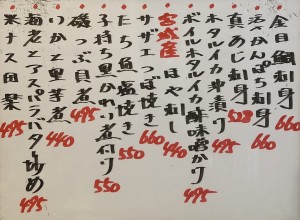 金目鯛刺身 660
活〆かんぱち刺身 660
真あじ刺身 528
ホタルイカ沖漬り 495
ボイルホタルイカ酢味噌かけ 495
宮城産 ほや刺し 660
サザエつぼ焼き 660
たち魚塩焼き 550
子持ち黒かれい煮付け 550
磯つぶ貝煮 495
いかと里芋煮 440
海老とアスパラバター炒め 495
米ナス田楽 495